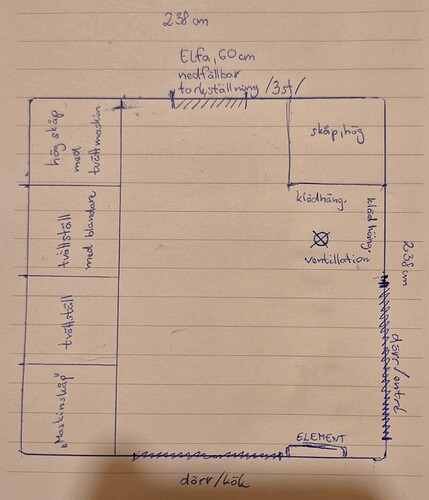 238 cm
Elfa, 60 cm
nedfällbar
torkställning /3st/
hög skåp
med
tvättmaskin
skåp, hög
klädhäng,
klädhäng,
tvättställ
med blandare
ventillation
238 cm
tvättställ
dörr/entré
"Maskinskåp"
ELEMENT
dörr/kök